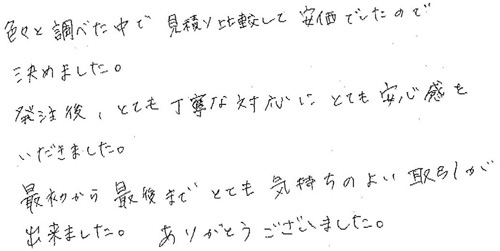 色々と調べた中で 見積り比較して 安価でしたので
決めました。
発注後、とても丁寧な対応に とても安心感を
いだきました。
最初から 最後まで とても 気持ちのよい 取引が
出来ました。 ありがとうございました。